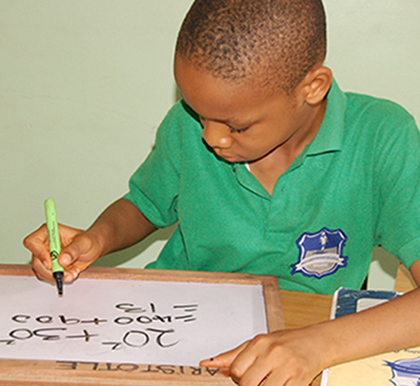 20²+30²
=400+900
=13
ARISTOTLE